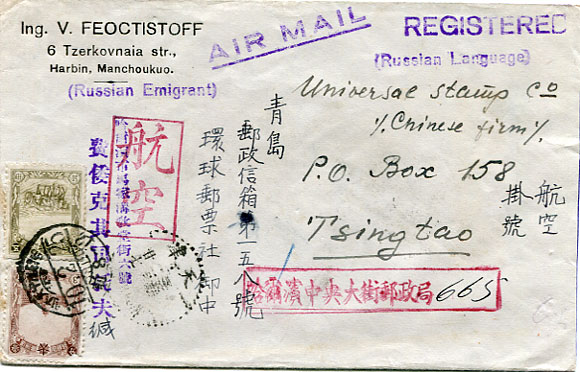 Ing. V. FEOCTISTOFF
6 Tzerkovnaia str.,
Harbin, Manchoukuo.
(Russian Emigrant)
AIR MAIL
REGISTERED
(Russian Language)
Universal Stamp Co
% Chinese firm %
P.O. Box 158
Tsingtao
航空
掛號
青島
郵政信箱第一五八號
環球郵票社 卽中
航空
緘
哈爾濱中央大街郵政局 665